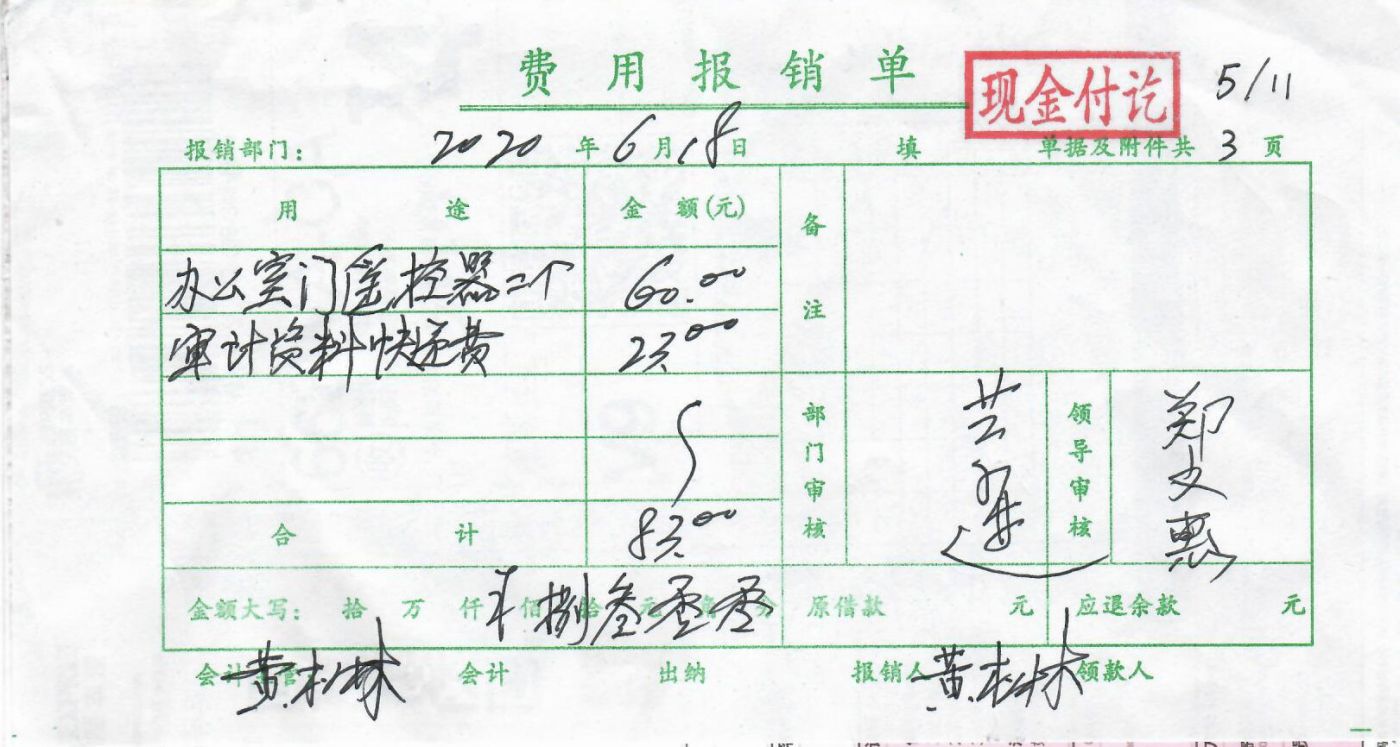 费用报销单
现金付讫
5/11
报销部门: 2020 年 6 月 18 日 填 单据及附件共 3 页
用途 金额(元) 备注
办公室门遥控器二个 60.00
审计资料快递费 23.00
部门审核 领导审核 郑文惠
合计 83.00
金额大写: 拾 万 仟 佰 ¥ 捌 拾 叁 元 零 角 零 分 原借款 元 应退余款 元
会计主管 黄松林 会计 出纳 报销人 黄松林 领款人